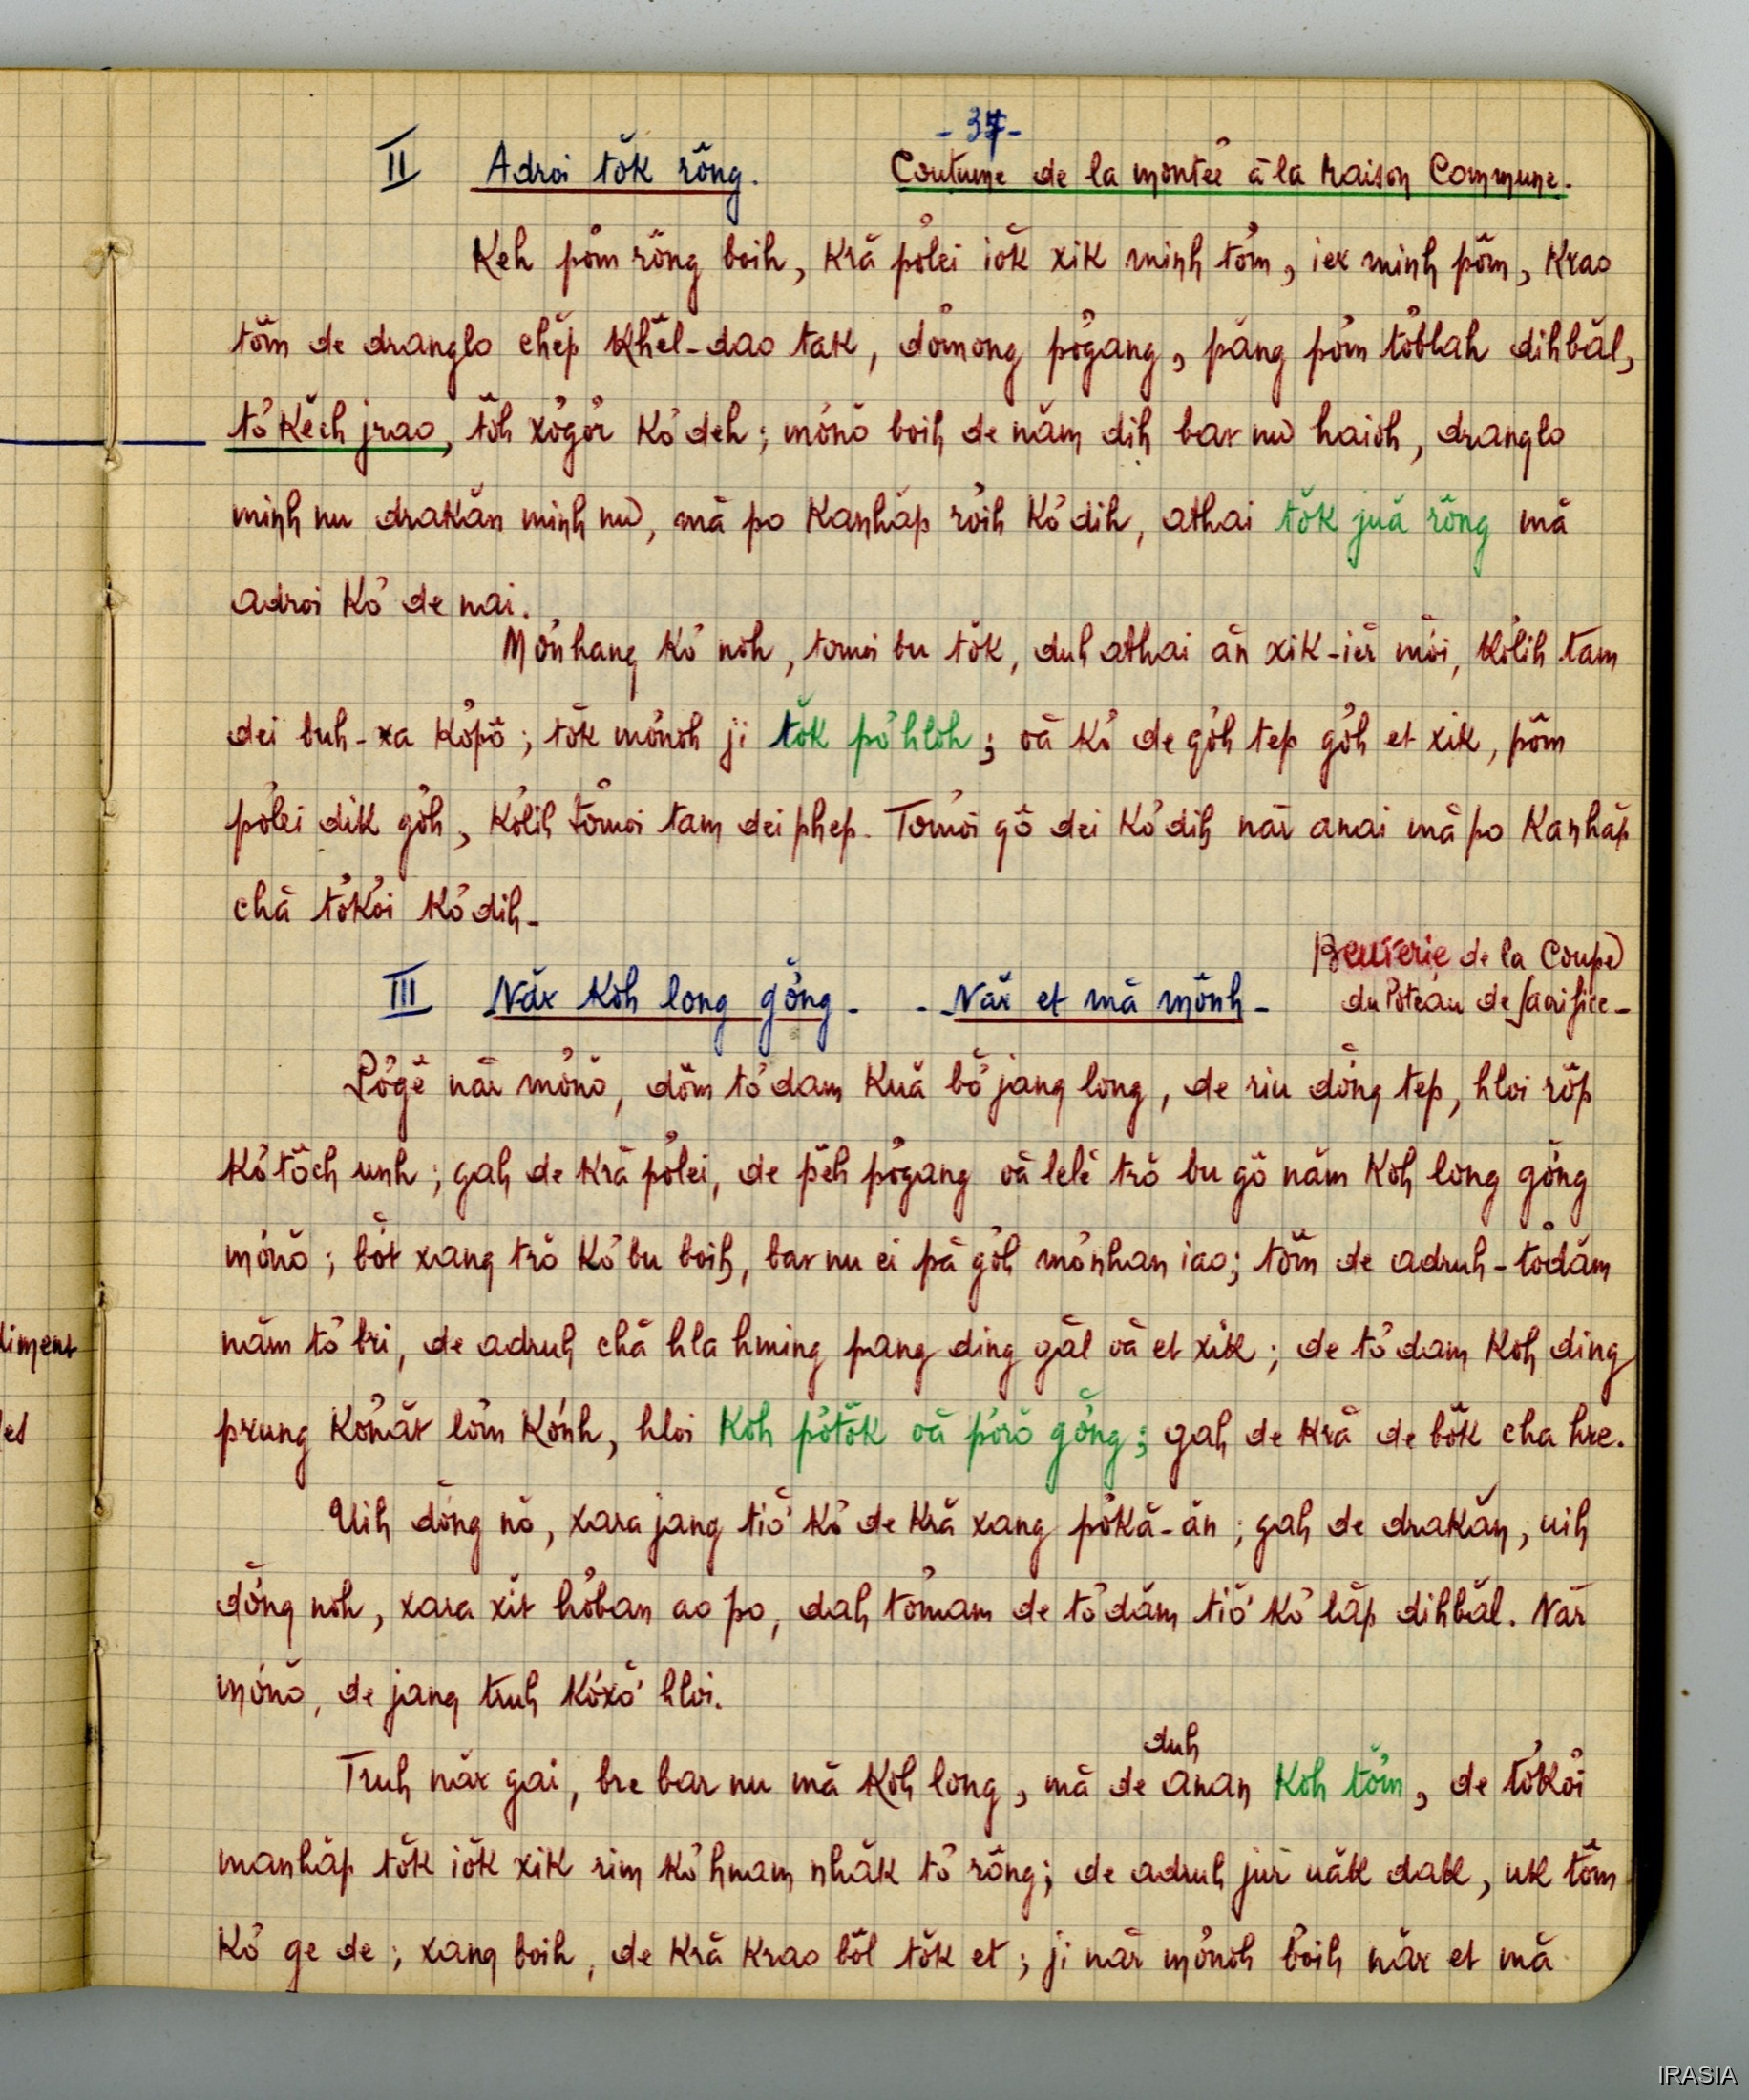 - 37 -
II Adroi tŏk rông. Coutume de la montée à la Maison Commune.
Keh pơ̆m rông boih, Kră pơlei iŏk xik minh tơ̆m, ier minh pôm, Krao
tôm de dranglo chĕp Khêl-dao tak, dơ̆mong pơgang, păng pơ̆m tơblah dihbăl,
tơkĕch jrao, tôh xơgơr kơ deh; mơnŏ boih de năm dih bar nu haioh, dranglo
minh nu drakăn minh nu, mă po Kanhăp rơih kơ dih, athai tŏk juă rông mă
adroi kơ de nai.
Mơnhang kơ noh, tơmoi bu tŏk, duh athai ăn xik-ier mơ̆i, kơlih tam
dei buh-xa kơpô; tŏk mơnoh ji tŏk pơhlŏh; oă kơ de gơh tep gơh et xik, pơ̆m
pơlei dik gơh, kơlih tơmoi tam dei phep. Tơmoi gô dei kơdih năr anai mă po Kanhăp
chă tơkơi kơdih-
III Năr Koh long gơ̆ng - - Năr et mă mônh - Beuverie de la Coupe
du Poteau de Sacrifice -
Pơgê năr mơnŏ, dôm tơdam Kuă bơjang long, de riu dơ̆ng tep, hloi rŏp
kơtŏch unh; gah de Kră pơlei, de pĕh pơgang oă lelĕ trŏ bu gô năm Koh long gơ̆ng
mơnŏ; bơ̆t xang trŏ kơ bu boih, bar nu ei pă gơh mơnhan iao; tôm de adruh-tơdăm
năm tơ bri, de adruh chă hla hming pang ding găl oă et xik; de tơdam Koh ding
prung kơmăr lơ̆m kơnh, hloi Koh pơtŏk oă pơrŏ gơ̆ng; gah de Kră de bŏk cha hre.
Uih dơ̆ng nŏ, xara jang tiŏ kơ de Kră xang pơkă-ăn; gah de drakăn, uih
dơ̆ng noh, xara xĭr hơban ao po, dah tơmam de tơdăm tiŏ kơ lăp dihbăl. Năr
mơnŏ, de jang truh kơxơ̆ hloi.
Truh năr gai, bre bar nu mă Koh long, mă de duh anan Koh tơ̆m, de tơkơi
manhăp tŏk iŏk xik rim kơ hnam nhăk tơ rông; de adruh jur uăk dak, uk tôm
kơ ge de; xang boih, de Kră Krao bôl tŏk et; ji năr mơnoh boih năr et mă